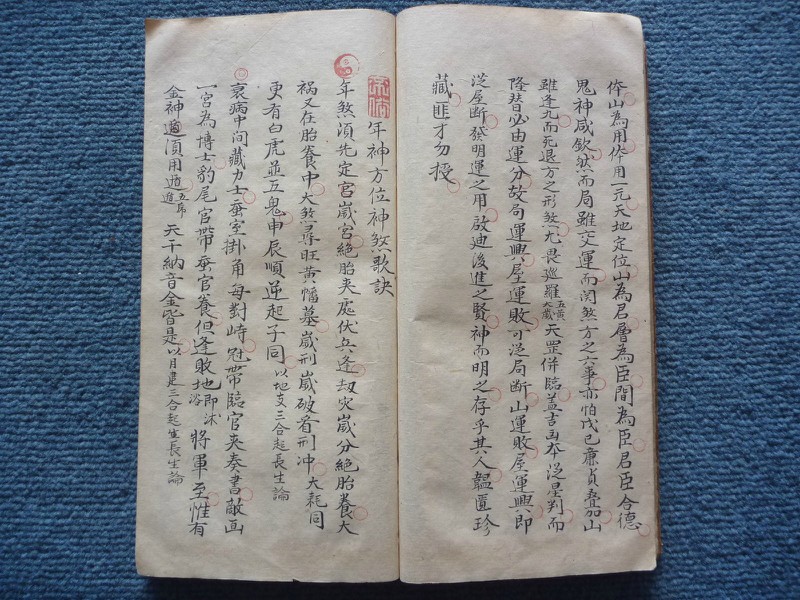 体山為用体用一元天地定位山為君層為臣間為臣君臣合德
鬼神咸欽然而局雖交運而関煞方之六事亦怕戊己廉貞叠加山
雖逢九而死退方之形煞尤畏巡羅五黄大歲天罡併臨盖吉凶本從星判而
隆替必由運分故局運興屋運敗可從局断山運敗屋運興即
從屋断發明運之用啟迪後進之賢神而明之存乎其人韞匱珍
藏匪才勿授
年神方位神煞歌訣
年煞須先定宫歲宫絕胎夾處伏兵逢劫灾歲分絕胎養大
祸又在胎養中大煞尋旺黄幡墓歲刑歲破看刑冲大耗同
更有白虎並五鬼申辰順逆起子同以地支三合起長生論
衰病中间藏力士蚕室掛角每對峙冠帶臨官夾奏書敵画
一宫為博士豹尾官帶蚕官養但逢敗地即沐浴將軍至惟有
金神遁須用遁五席天干納音金皆是以月建三合起生長生論